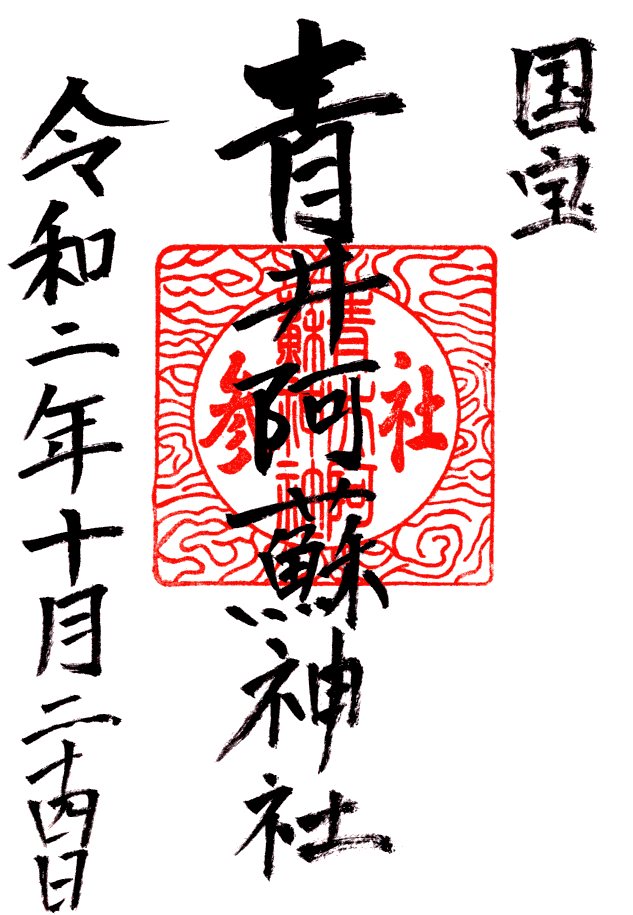 国宝
青井阿蘇神社
社参
青井阿蘇神社
令和二年十月二十四日